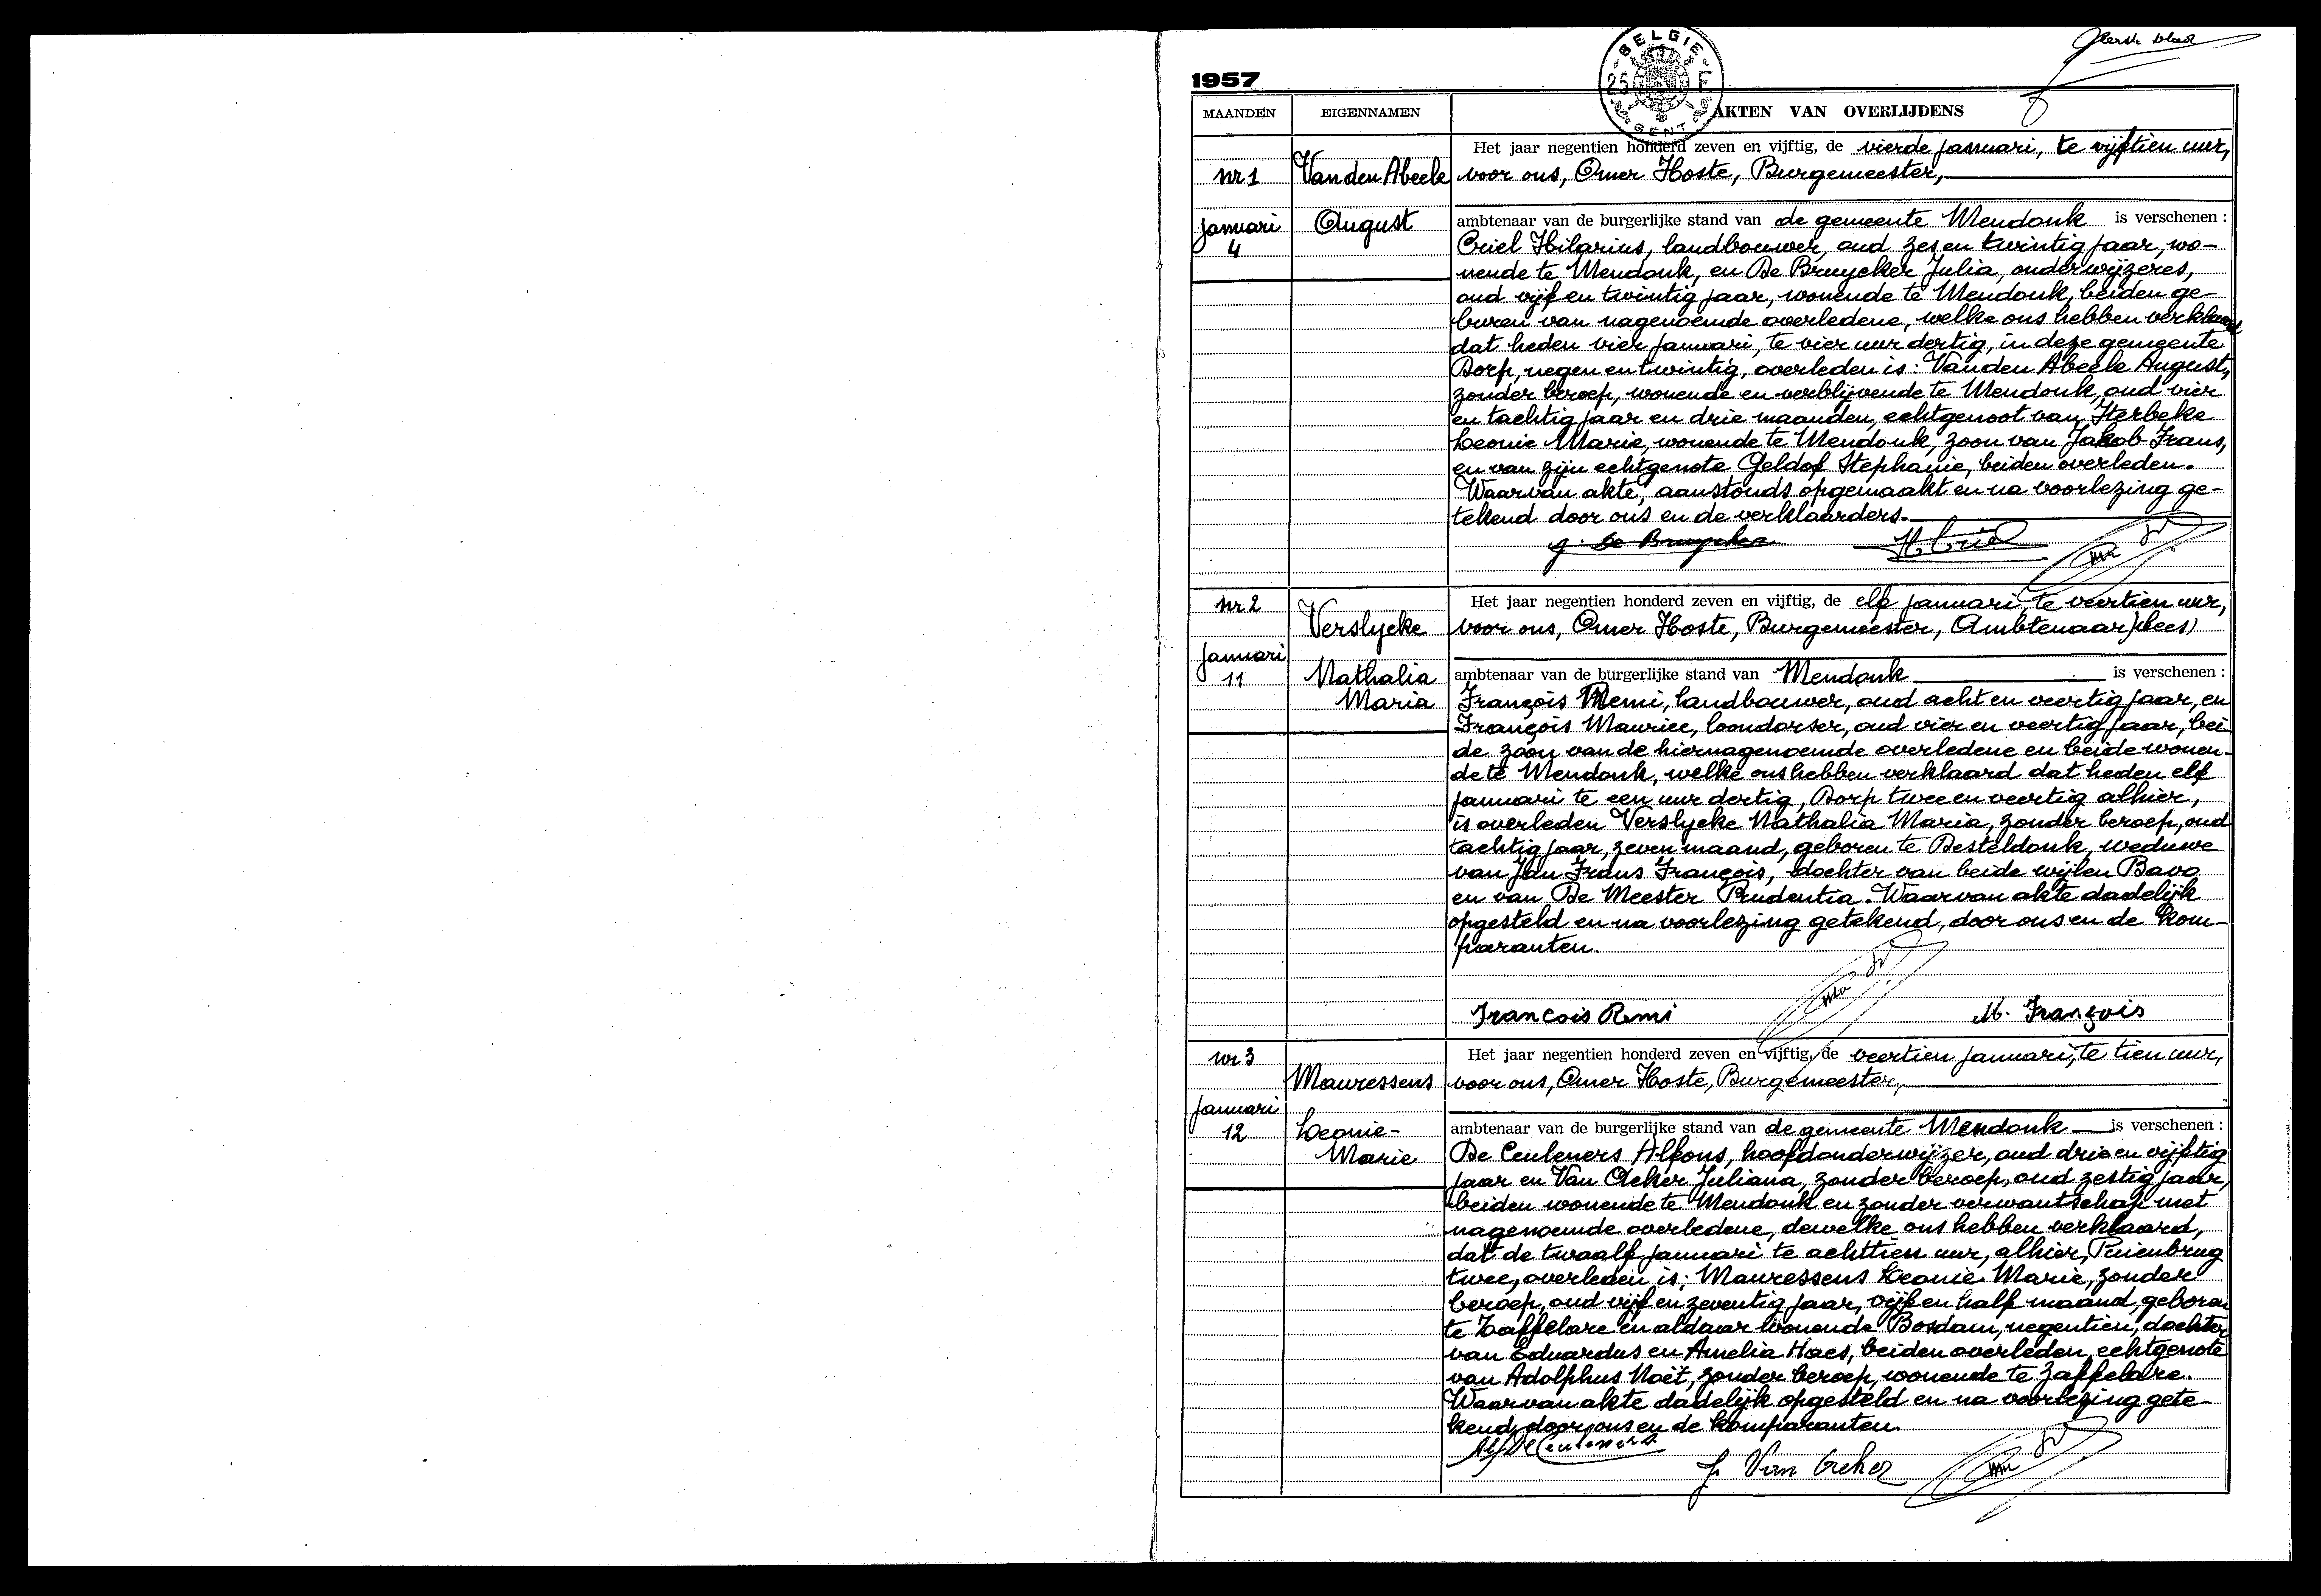 Eerste blad
BELGIE
25 F
GENT
1957
MAANDEN EIGENNAMEN AKTEN VAN OVERLIJDENS
nr 1
Januari
4
Van den Abeele
August
Het jaar negentien honderd zeven en vijftig, de vierde januari, te vijftien uur,
voor ons, Omer Hoste, Burgemeester,
ambtenaar van de burgerlijke stand van de gemeente Mendonk is verschenen :
Criel Hilarius, landbouwer, oud zes en twintig jaar, wo-
nende te Mendonk, en De Bruycker Julia, onderwijzeres,
oud vijf en twintig jaar, wonende te Mendonk, beiden ge-
buren van nagenoemde overledene, welke ons hebben verklaard
dat heden vier januari, te vier uur dertig, in deze gemeente
Dorp, negen en twintig, overleden is : Van den Abeele August,
zonder beroep, wonende en verblijvende te Mendonk, oud vier
en tachtig jaar en drie maanden, echtgenoot van Iterbeke
Leonie Marie, wonende te Mendonk, zoon van Jakob Frans,
en van zijn echtgenote Geldof Stephanie, beiden overleden.
Waarvan akte, aanstonds opgemaakt en na voorlezing ge-
tekend door ons en de verklaarders.
J. De Bruycker H Criel
nr 2
Januari
11
Verslycke
Nathalia
Maria
Het jaar negentien honderd zeven en vijftig, de elf januari, te veertien uur,
voor ons, Omer Hoste, Burgemeester, Ambtenaar
ambtenaar van de burgerlijke stand van Mendonk is verschenen :
François Remi, landbouwer, oud acht en veertig jaar, en
François Maurice, loondorser, oud vier en veertig jaar, bei
de zoon van de hiernagenoemde overledene en beide wonen-
de te Mendonk, welke ons hebben verklaard dat heden elf
januari te een uur dertig, Dorp twee en veertig alhier,
is overleden Verslycke Nathalia Maria, zonder beroep, oud
tachtig jaar, zeven maand, geboren te Desteldonk, weduwe
van Jan Frans François, dochter van beide wijlen Bavo
en van De Meester Prudentia. Waarvan akte dadelijk
opgesteld en na voorlezing getekend, door ons en de kom-
paranten.
Francois Remi M. François
nr 3
Januari
12
Mauressens
Leonie-
Marie
Het jaar negentien honderd zeven en vijftig, de veertien januari, te tien uur,
voor ons, Omer Hoste, Burgemeester,
ambtenaar van de burgerlijke stand van de gemeente Mendonk is verschenen :
De Ceuleners Alfons, hoofdonderwijzer, oud drie en vijftig
jaar en Van Acker Juliana, zonder beroep, oud zestig jaar,
beiden wonende te Mendonk en zonder verwantschap met
nagenoemde overledene, dewelke ons hebben verklaard,
dat de twaalf januari te achttien uur, alhier, Puienbrug
twee, overleden is : Mauressens Leonie Marie, zonder
beroep, oud vijf en zeventig jaar, vijf en half maand, geboren
te Zaffelare en aldaar wonende Bosdam, negentien, dochter
van Eduardus en Amelia Haes, beiden overleden, echtgenote
van Adolphus Noët, zonder beroep, wonende te Zaffelare.
Waarvan akte dadelijk opgesteld en na voorlezing gete-
kend, door ons en de komparanten.
Alf De Ceuleners
J. Van Acker